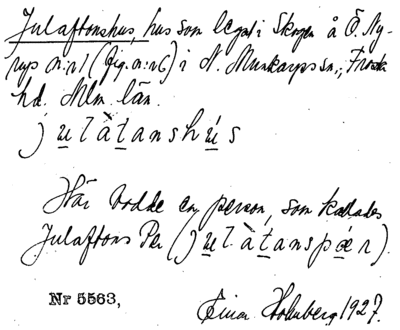 Julaftonshus, hus som legat i skogen å Ö. Ny-
rups n:r 1 (fig. n:r 6) i N. Munkarps sn., Frosta
hd. Mlm. län.
julàtanshús
Här bodde en person, som kallades
Julaftons Per (julàtanspær).
Nr 5563,
Einar Holmberg 1927.